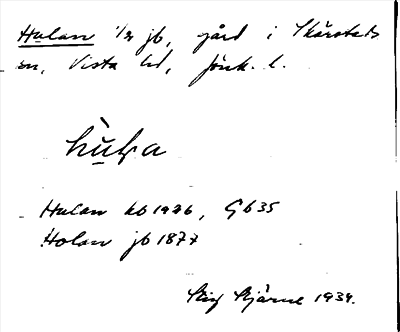 Hulan 1/2 jb, gård i Skärstads
sn, Vista hd, Jönk. l.
Hulan kb 1926, Gb 35
Holan jb 1877
Stig Stjärne 1939.